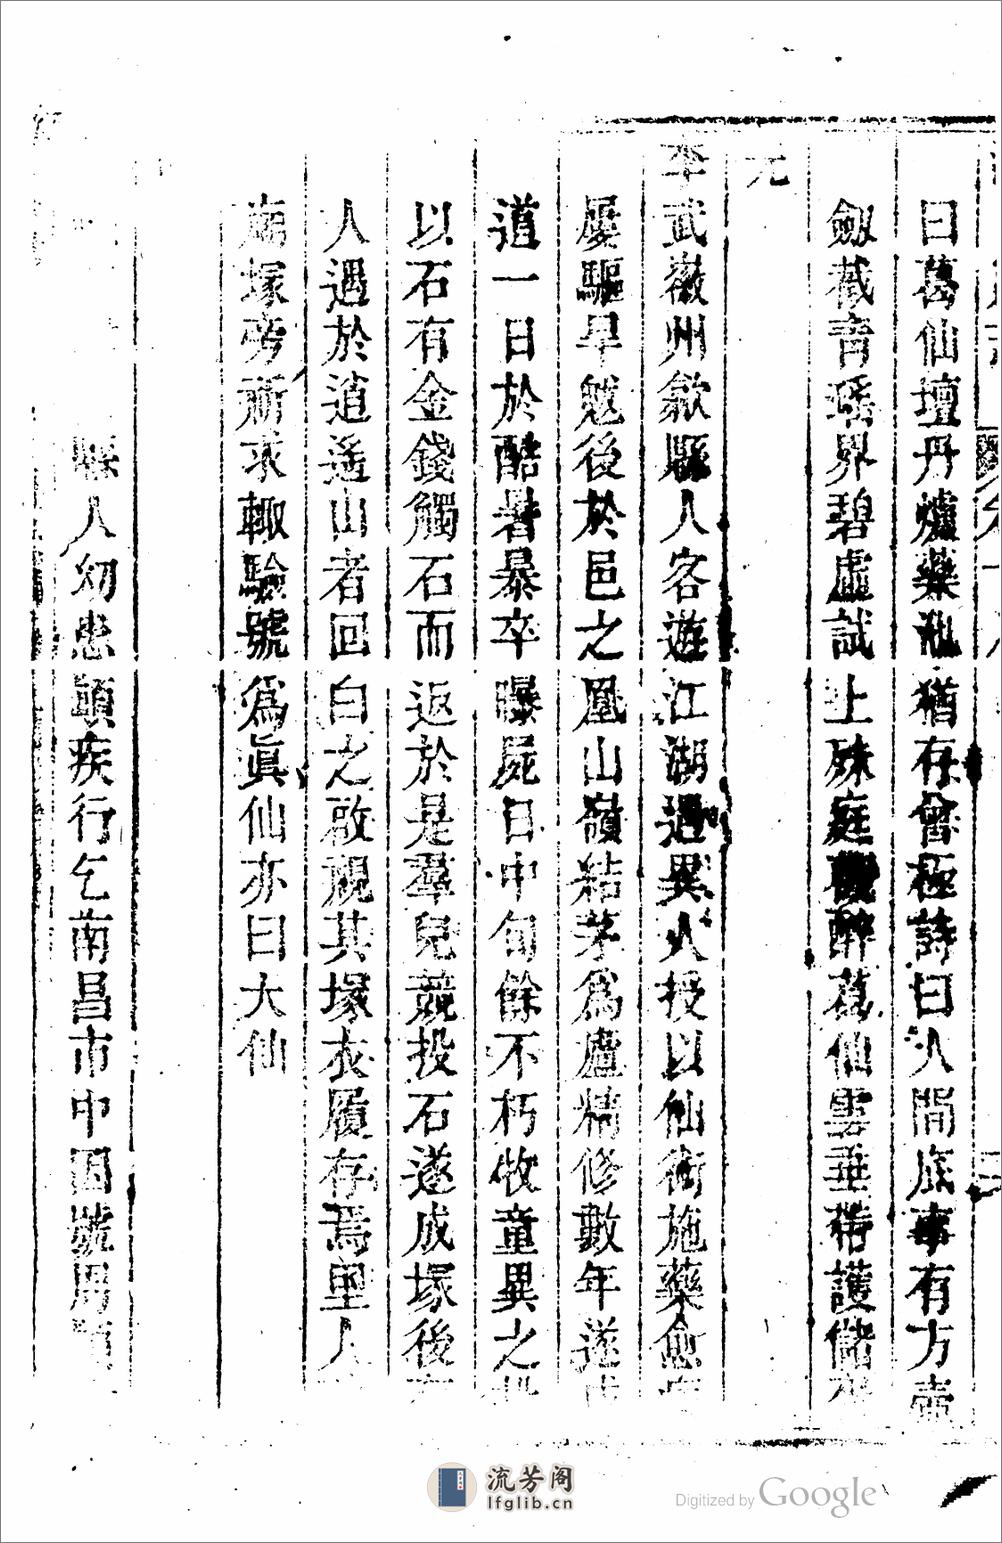 曰葛仙壇丹爐藥汍猶存曾極詩曰人間底事有方壺
劔藏音瑤界碧虛試上殊庭酹葛仙雲垂帶護儲
元
李武徽州歙縣人客遊江湖遇異人授以仙術施藥愈
屢驅旱魃後於邑之鳳山嶺結茅爲廬精修數年遂
道一日於酷暑暴卒曝屍日中旬餘不朽牧童異之
以石有金錢觸石而返於是羣兒競投石遂成塚後
人遇於逍遙山者回白之啟視其塚衣履存焉里人
廟塚旁祈求輙驗號爲眞仙亦曰大仙
縣人幼患顛疾行乞南昌市中因號周顛
流芳阁
lfglib.cn
Digitized by Google